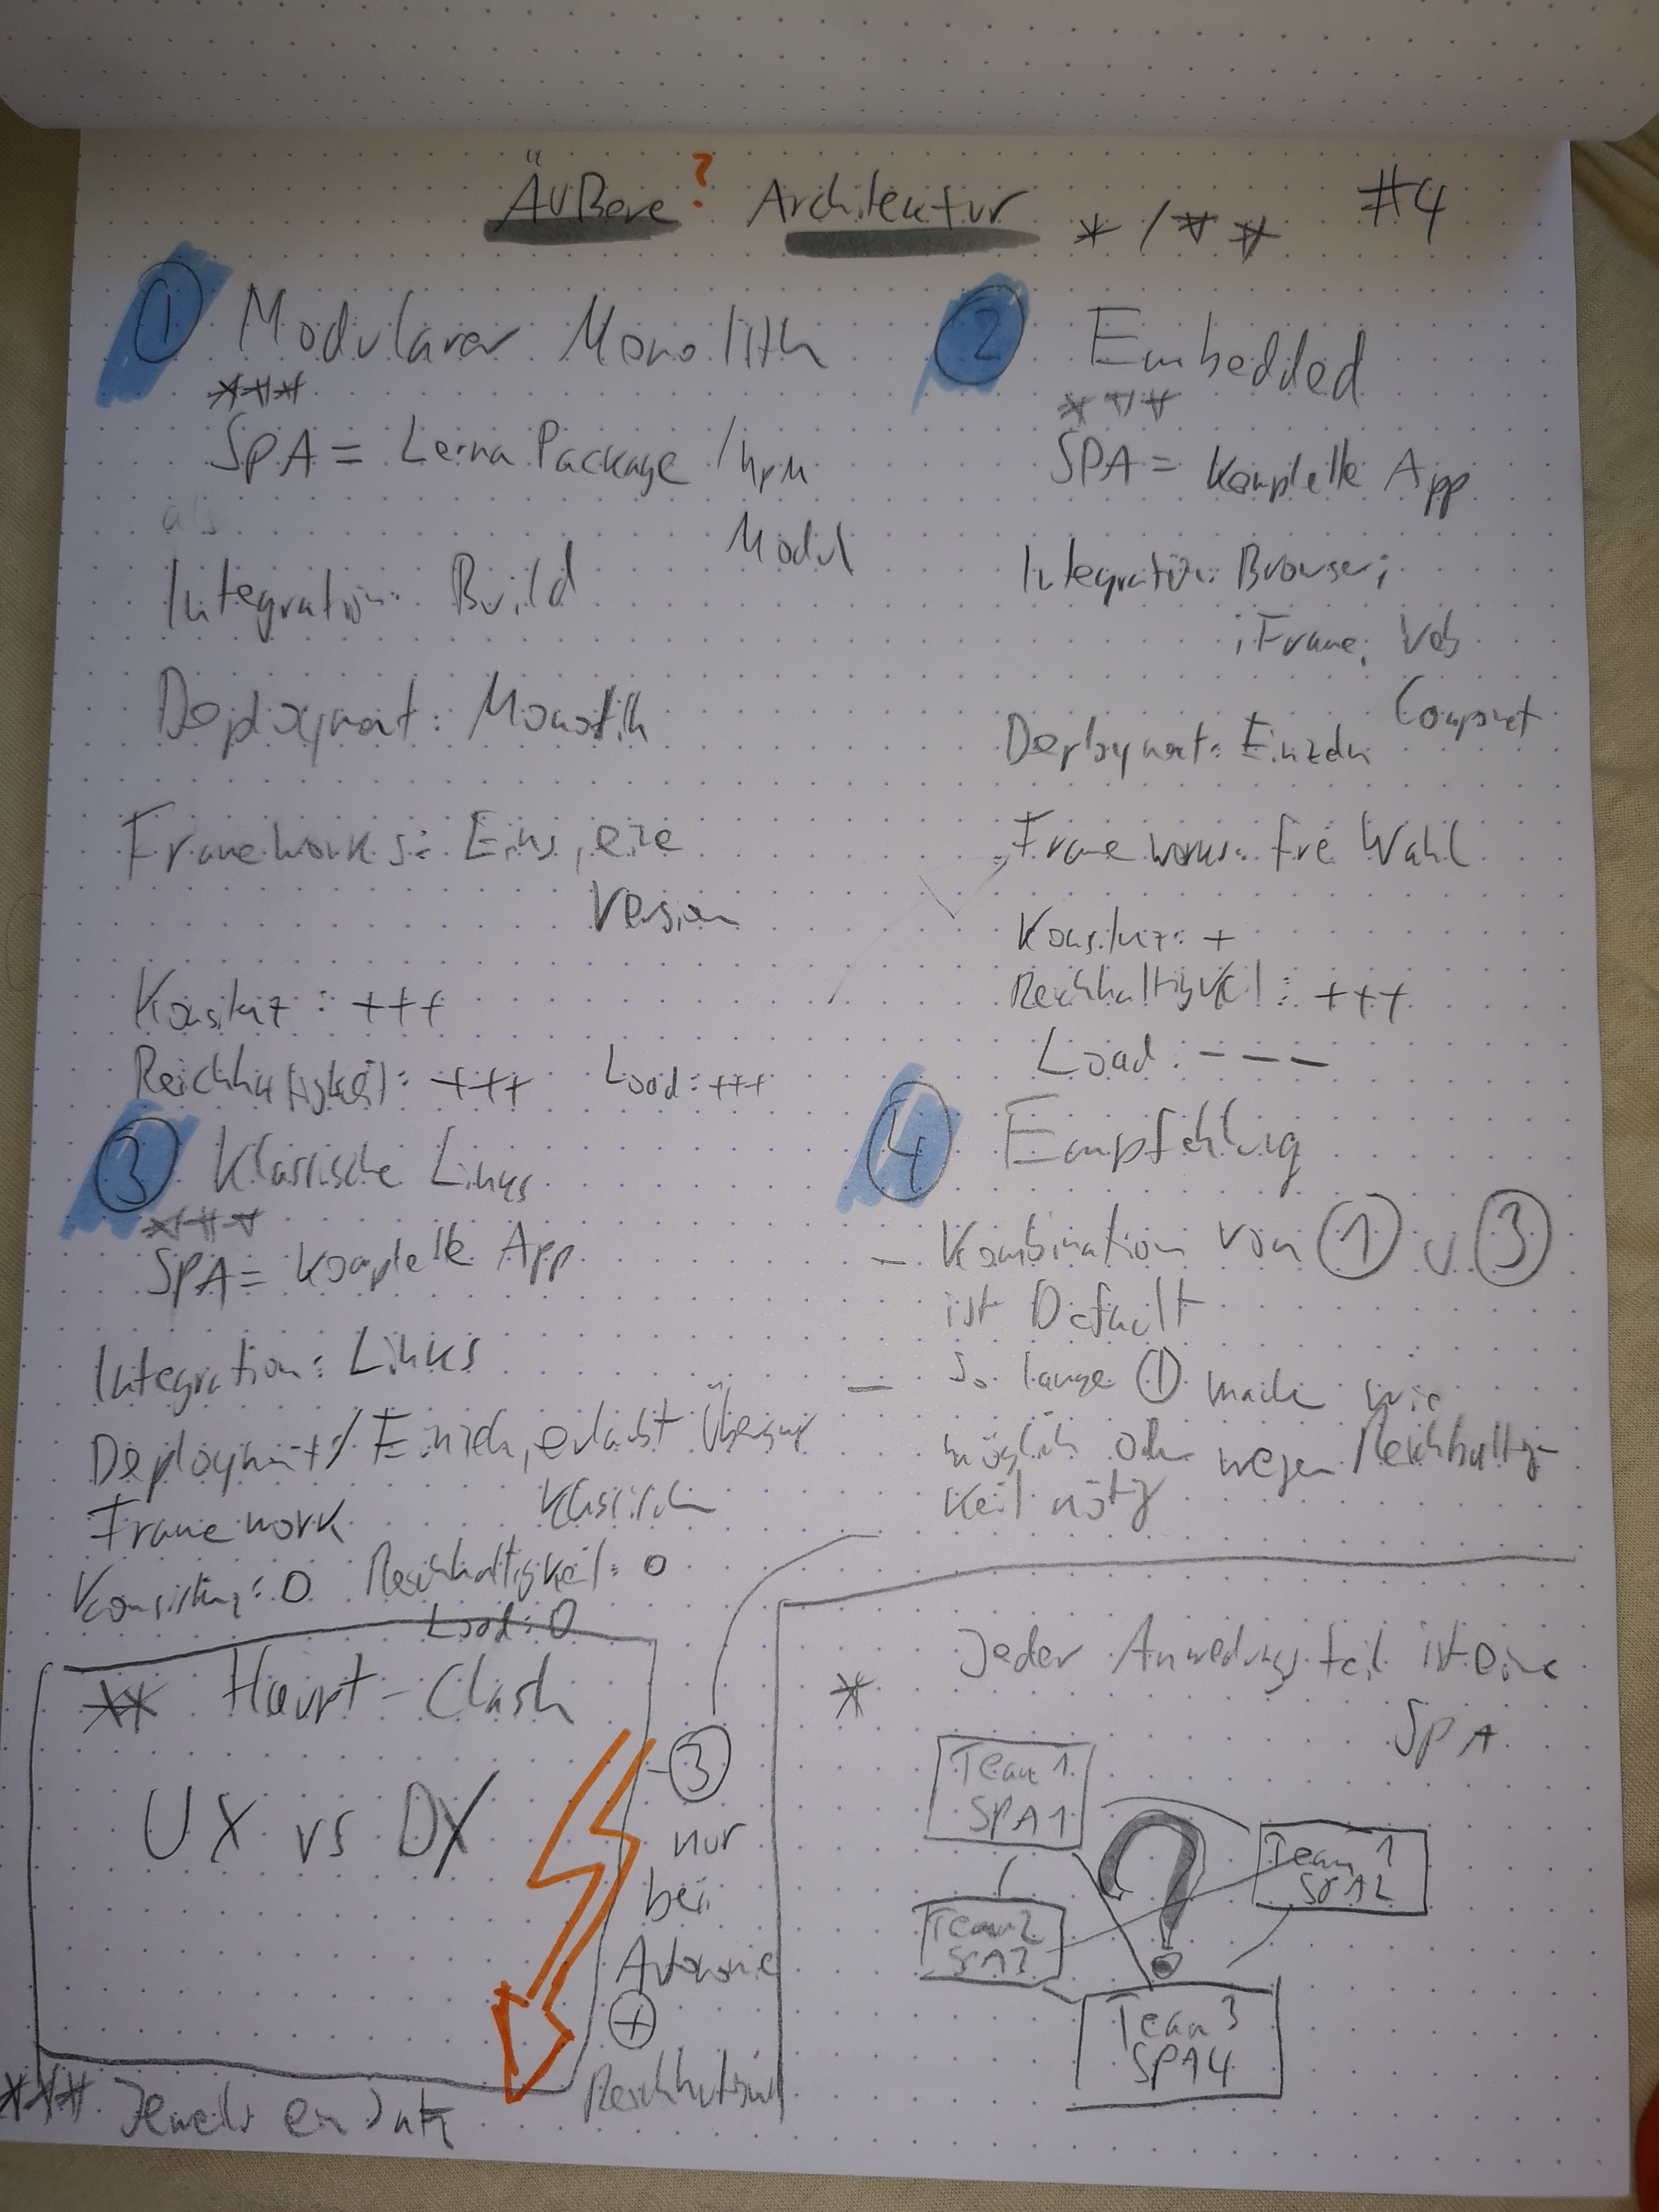 Äußere? Architektur * / ** #4
① Modularer Monolith
***
SPA = Lerna Package / npm
Modul
als
Integration: Build
Deployment: Monolith
Frameworks: Eins, eine
Version
Konsistenz: +++
Reichhaltigkeit: +++ Load: +++
② Embedded
***
SPA = Komplette App
Integration: Browser;
iFrame; Web
Component
Deployment: Einzeln
Frameworks: freie Wahl
Konsistenz: +
Reichhaltigkeit: +++
Load: ---
③ Klassische Links
***
SPA = Komplette App
Integration: Links
Deployment/ Einzeln, erlaubt
Klassisch
Framework
Konsistenz: 0 Reichhaltigkeit: 0
Load: 0
④ Empfehlung
- Kombination von ① u ③
ist Default
- So lange ① machen wie
möglich oder wegen Reichhaltig-
keit nötig
- ③
nur
bei
Autonomie
+
** Haupt-Clash
UX vs DX
* Jeder Anwendungsteil ist eine
SPA
Team 1
SPA 1
Team 1
SPA 2
Team 2
SPA 3
Team 3
SPA 4
*** Jeweils ein Satz